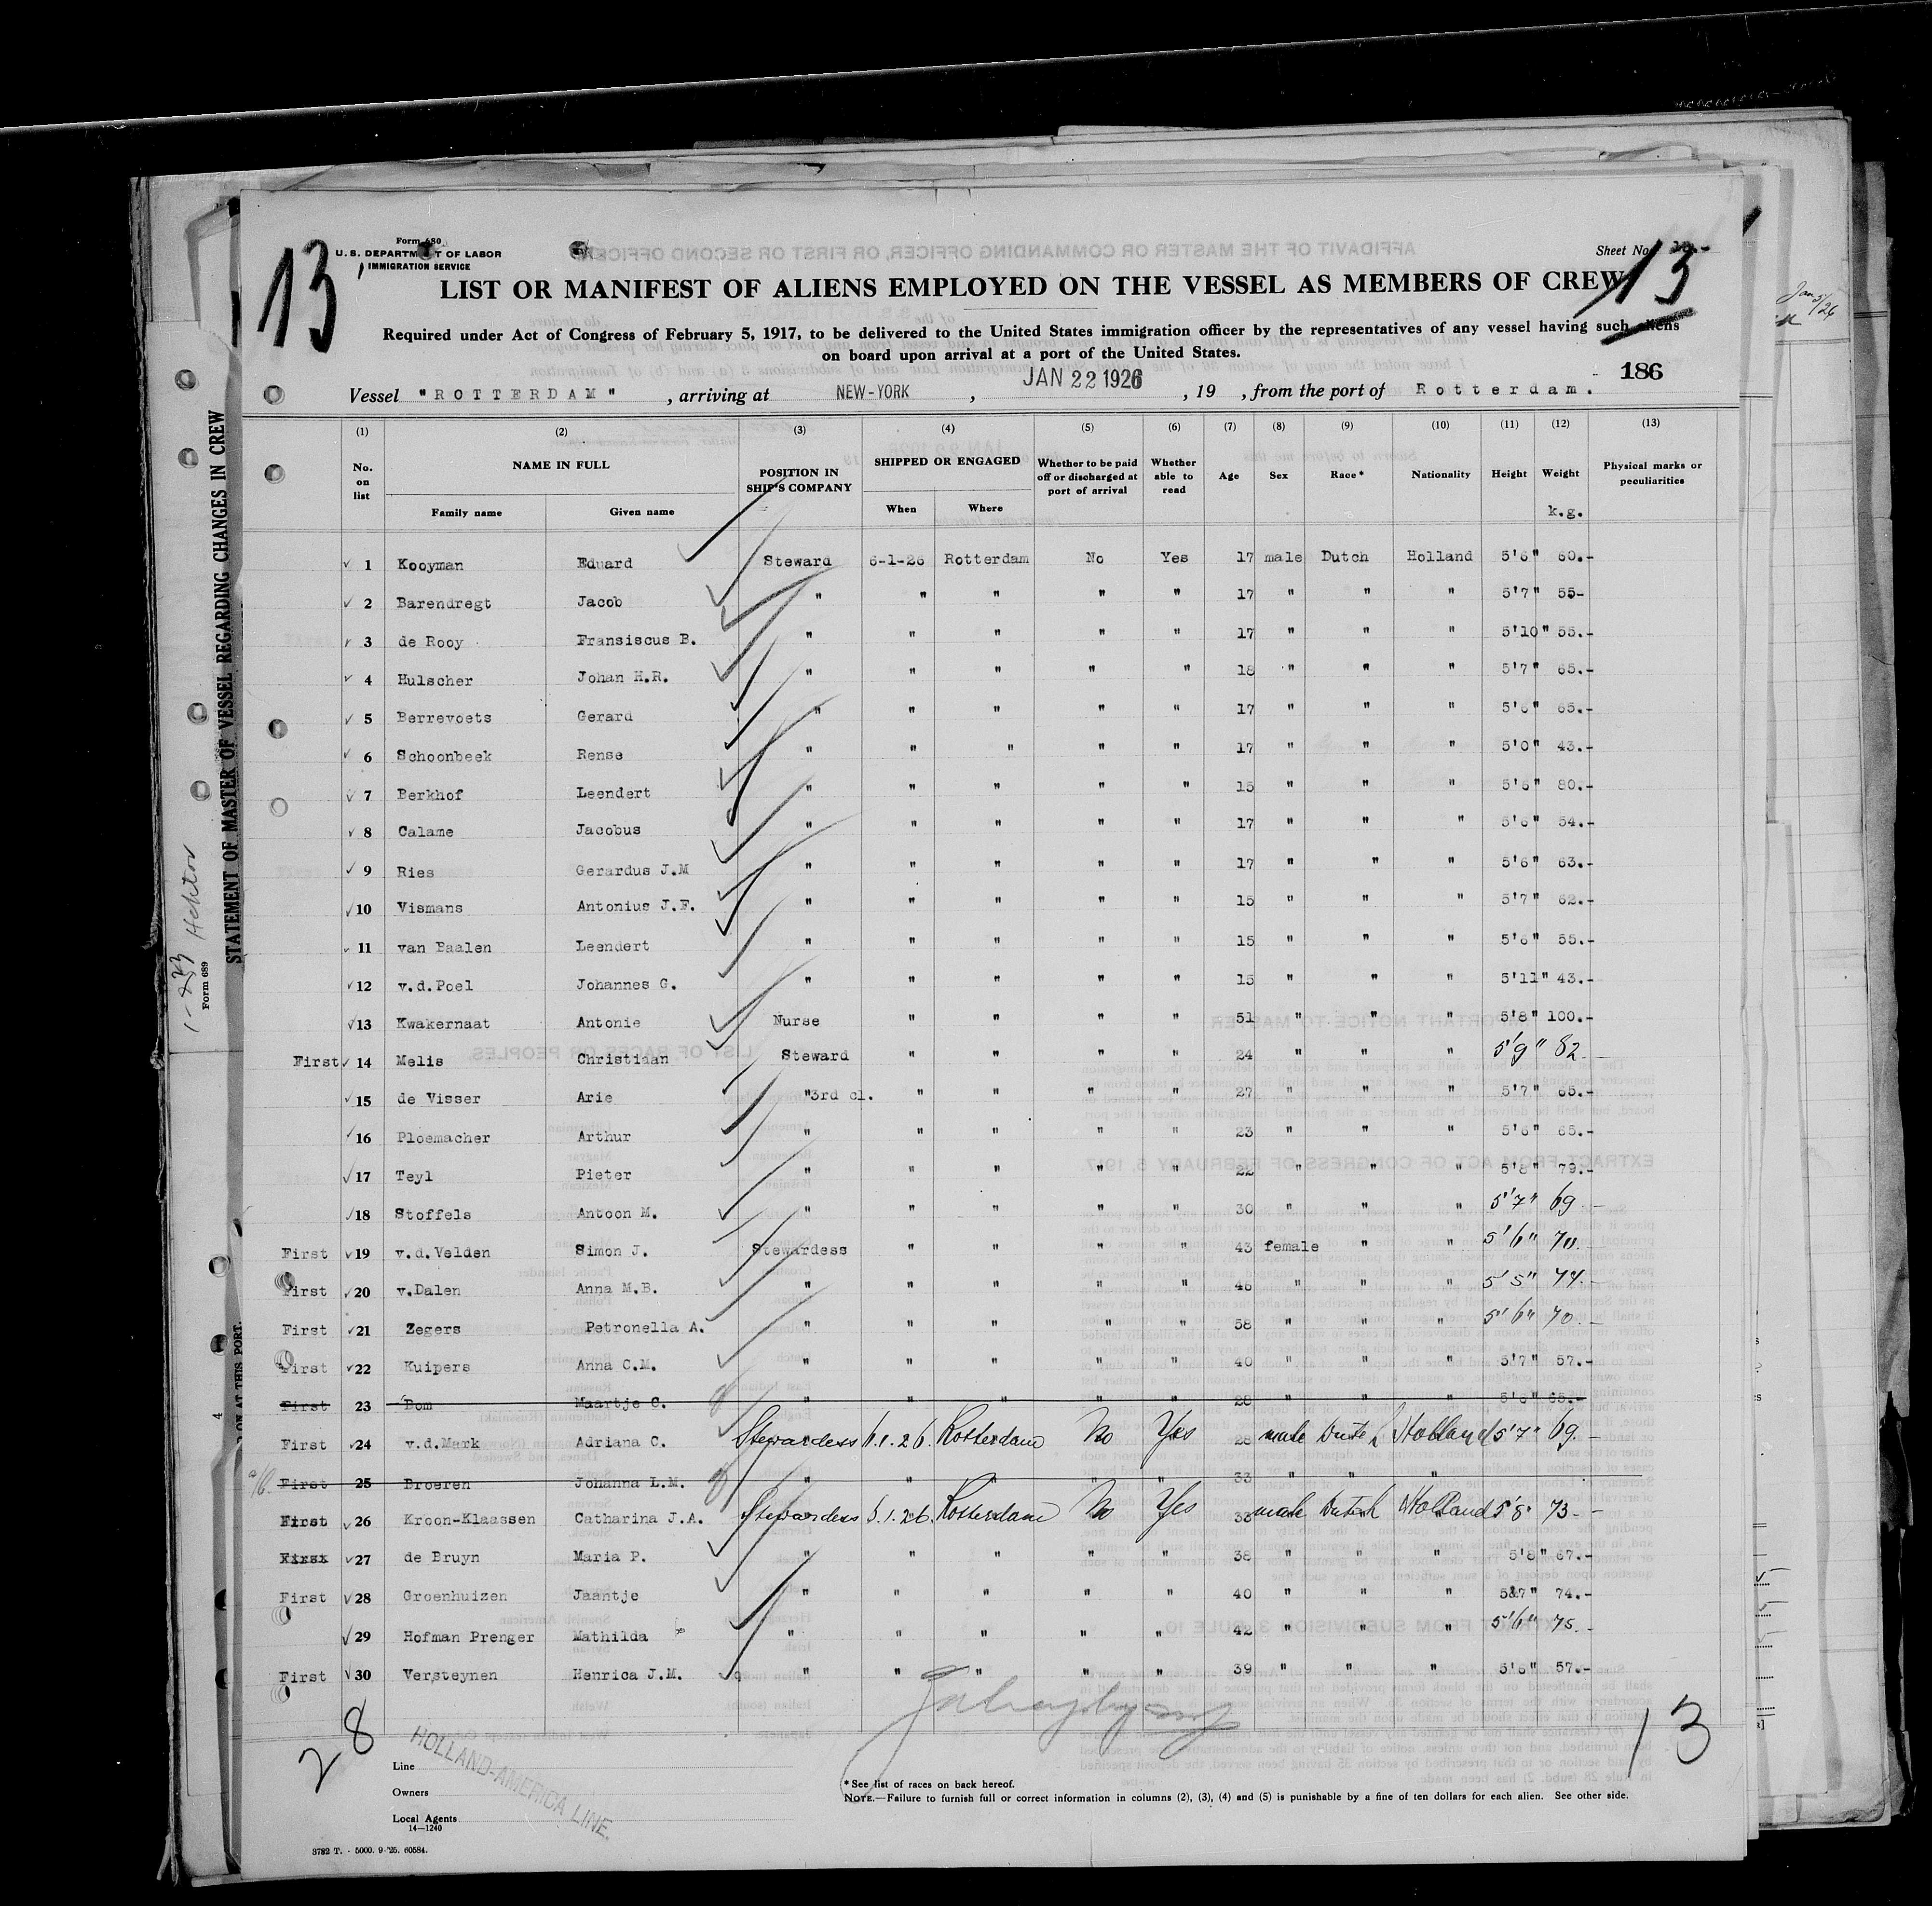 13
Form 680
U. S. DEPARTMENT OF LABOR
IMMIGRATION SERVICE
Sheet No.
13
LIST OR MANIFEST OF ALIENS EMPLOYED ON THE VESSEL AS MEMBERS OF CREW
Required under Act of Congress of February 5, 1917, to be delivered to the United States immigration officer by the representatives of any vessel having such aliens
on board upon arrival at a port of the United States.
186
Vessel "ROTTERDAM" , arriving at NEW-YORK , JAN 22 1926 , 19 , from the port of Rotterdam.
(1) (2) (3) (4) (5) (6) (7) (8) (9) (10) (11) (12) (13)
No. on list NAME IN FULL Family name Given name POSITION IN SHIP'S COMPANY SHIPPED OR ENGAGED When Where Whether to be paid off or discharged at port of arrival Whether able to read Age Sex Race* Nationality Height Weight k.g. Physical marks or peculiarities
1 Kooyman Eduard Steward 6-1-26 Rotterdam No Yes 17 male Dutch Holland 5'6" 60.-
2 Barendregt Jacob " " " " " 17 " " " 5'7" 55-
3 de Rooy Fransiscus B. " " " " " 17 " " " 5'10" 55.-
4 Hulscher Johan H.R. " " " " " 18 " " " 5'7" 65.-
5 Berrevoets Gerard " " " " " 17 " " " 5'6" 65.-
6 Schoonbeek Rense " " " " " 17 " " " 5'0" 43.-
7 Berkhof Leendert " " " " " 15 " " " 5'6" 80.-
8 Calame Jacobus " " " " " 17 " " " 5'6" 54.-
9 Ries Gerardus J.M " " " " " 17 " " " 5'6" 63.-
10 Vismans Antonius J.F. " " " " " 15 " " " 5'7" 62.-
11 van Baalen Leendert " " " " " 15 " " " 5'6" 55.-
12 v.d.Poel Johannes G. " " " " " 15 " " " 5'11" 43.-
13 Kwakernaat Antonie Nurse " " " " 51 " " " 5'8" 100.-
First 14 Melis Christiaan Steward " " " " 24 " " " 5'9" 82.-
15 de Visser Arie "3rd cl. " " " " 27 " " " 5'7" 65.-
16 Ploemacher Arthur " " " " " 23 " " " 5'6" 65.-
17 Teyl Pieter " " " " " 22 " " " 5'8" 79.-
18 Stoffels Antoon M. " " " " " 30 " " " 5'7" 69.-
First 19 v.d.Velden Simon J. Stewardess " " " " 43 female " " 5'6" 70.-
First 20 v.Dalen Anna M.B. " " " " " 46 " " " 5'5" 74.-
First 21 Zegers Petronella A. " " " " " 58 " " " 5'6" 70.-
First 22 Kuipers Anna C.M. " " " " " 40 " " " 5'7" 57.-
First 23 Bom Maartje C. " " " " " 28 " " " 5'6" 65.-
First 24 v.d.Mark Adriana C. Stewardess 6.1.26. Rotterdam No Yes 28 male Dutch Holland 5'7" 69.-
First 25 Broeren Johanna L.M. " " " " " 33 " " "
First 26 Kroon-Klaassen Catharina J.A. Stewardess 6.1.26. Rotterdam No Yes 33 male Dutch Holland 5'8" 73.-
First 27 de Bruyn Maria P. " " " " " 38 " " " 5'8" 67.-
First 28 Groenhuizen Jaantje " " " " " 40 " " " 5&7" 74.-
29 Hofman Prenger Mathilda " " " " " 42 " " " 5'6" 75.-
First 30 Versteynen Henrica J.M. " " " " " 39 " " " 5'6" 57.-
28
13
Line
HOLLAND-AMERICA LINE.
Owners
Local Agents
14—1240
* See list of races on back hereof.
NOTE.—Failure to furnish full or correct information in columns (2), (3), (4) and (5) is punishable by a fine of ten dollars for each alien. See other side.
3782 T. - 5000. 9-'25. 60584.
STATEMENT OF MASTER OF VESSEL REGARDING CHANGES IN CREW
Form 689